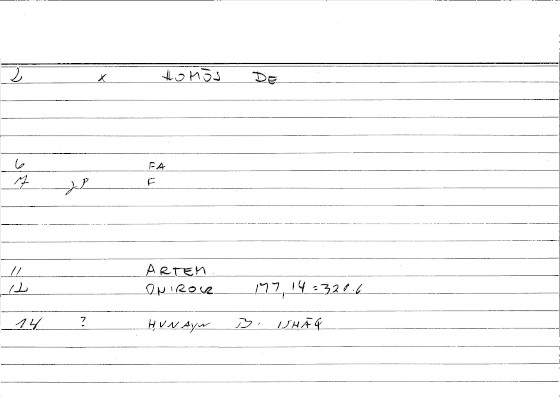 2 x HOMŌS DE
6 FA
7 F
11 ARTEM
12 ONIROCR 177, 14 = 328.6
14 ? HUNAYN B. ISHĀQ